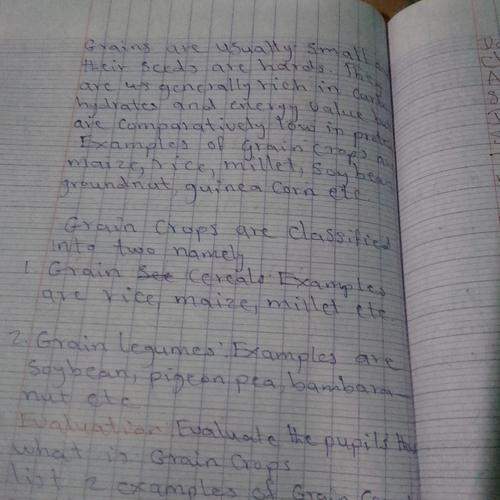 Grains are usually small
their seeds are hards. They
are us generally rich in carbo
hydrates and energy value but
are comparatively low in
Examples of grain crops
maize, rice, millet, soybean,
groundnut, guinea corn etc
Grain crops are classified
into two namely
1. Grain See cereals Examples
are rice, maize, millet etc
2. Grain legumes: Examples are
Soybean, pigeon pea, bambara-
nut etc
Evaluation Evaluate the pupils
what is Grain Crops
list 2 examples of Grain